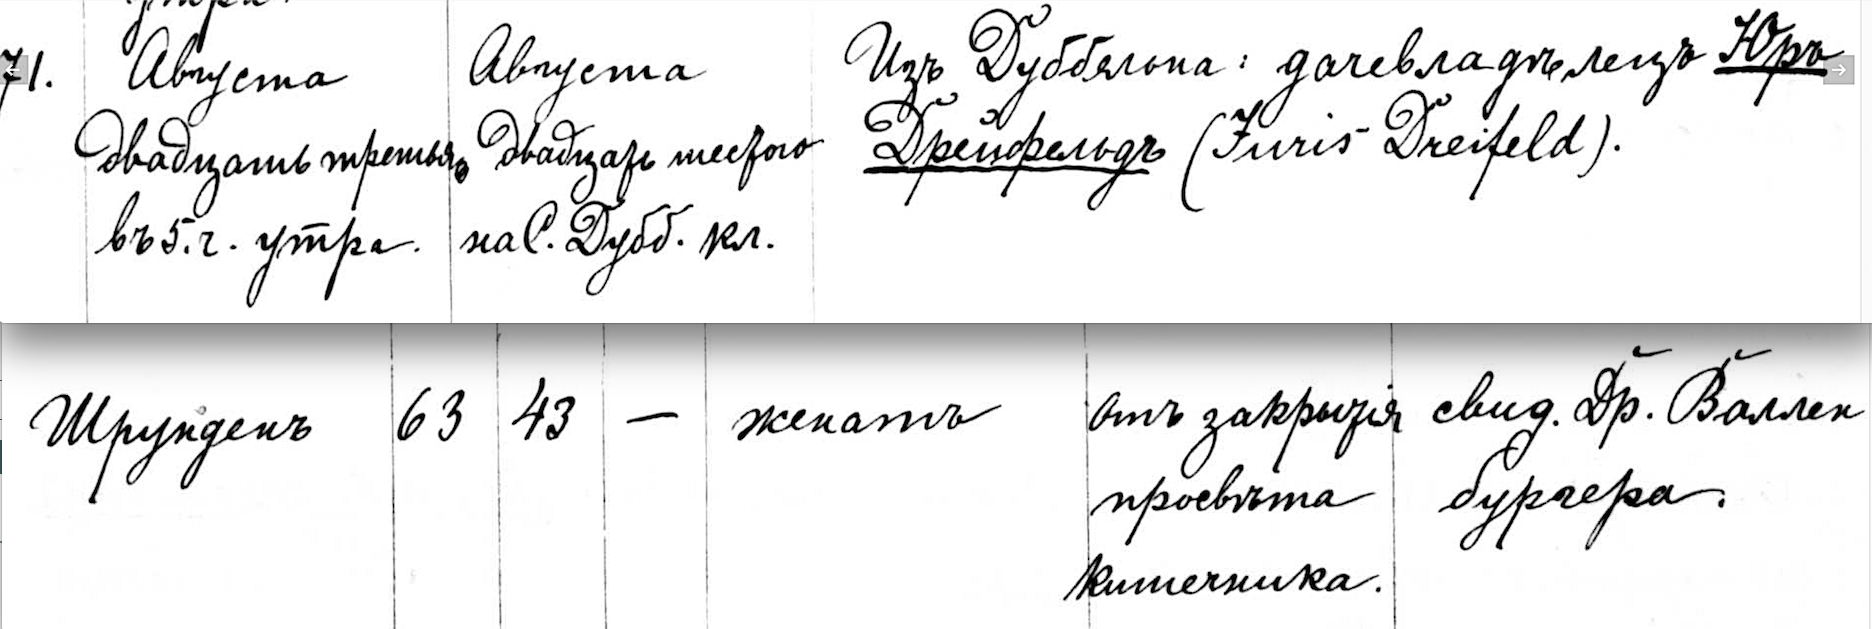 71.
Августа
двадцать третьяго
въ 5. ч. утра.
Августа
двадцать шестого
на С. Дубб. кл.
Изъ Дуббельна: дачевладѣлецъ Юръ
Дрейфельдъ (Juris Dreifeld).
Шрунденъ
63
43
—
женатъ
отъ закрытія
просвѣта
кишечника.
свид. Др. Валлен
бургера.